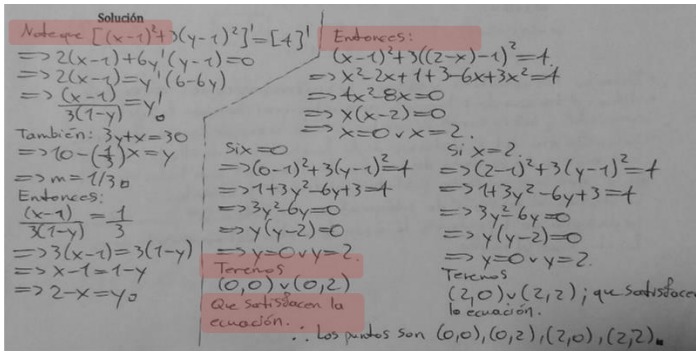 Solución
Note que [(x-1)²+3(y-1)²]' = [4]'
=> 2(x-1)+6y'(y-1)=0
=> 2(x-1)=y'(6-6y)
=> (x-1)/3(1-y) = y'.
También: 3y+x=30
=> 10-(1/3)x=y
=> m=1/3.
Entonces:
(x-1)/3(1-y) = 1/3
=> 3(x-1)=3(1-y)
=> x-1=1-y
=> 2-x=y.
Entonces:
(x-1)²+3((2-x)-1)²=4.
=> x²-2x+1+3-6x+3x²=4
=> 4x²-8x=0
=> x(x-2)=0
=> x=0 v x=2.
Si x=0
=> (0-1)²+3(y-1)²=4
=> 1+3y²-6y+3=4
=> 3y²-6y=0
=> y(y-2)=0
=> y=0 v y=2.
Tenemos
(0,0) v (0,2)
Que satisfacen la
ecuación.
Si x=2.
=> (2-1)²+3(y-1)²=4
=> 1+3y²-6y+3=4
=> 3y²-6y=0
=> y(y-2)=0
=> y=0 v y=2.
Tenemos
(2,0) v (2,2); que satisfacen
la ecuación.
∴ Los puntos son (0,0), (0,2), (2,0), (2,2).